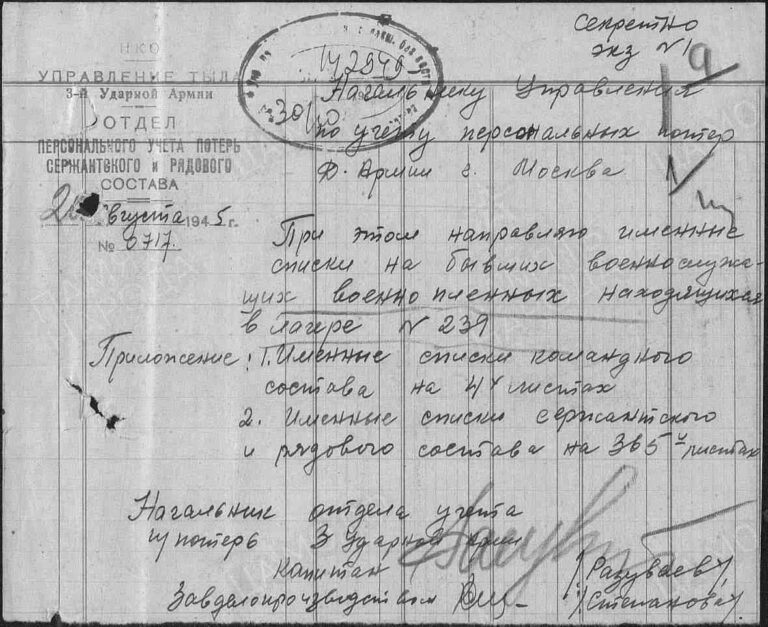 Секретно
экз №1
НКО
УПРАВЛЕНИЕ ТЫЛА
3-й Ударной Армии
ОТДЕЛ
ПЕРСОНАЛЬНОГО УЧЕТА ПОТЕРЬ
СЕРЖАНТСКОГО и РЯДОВОГО
СОСТАВА
августа 1945 г.
№ 0717.
Начальнику Управления
по учету персональных потер
Д. Армии г. Москва
При этом направляю именные
списки на бывших военнослужа-
щих военнопленных находящихся
в лагере № 239
Приложение: 1. Именные списки командного
состава на 4х листах
2. Именные списки сержантского
и рядового состава на 365 и листах
Начальник отдела учета
потерь 3 Ударной Арми
Капитан /Разуваев/
Завделопроизводством /Степанова/